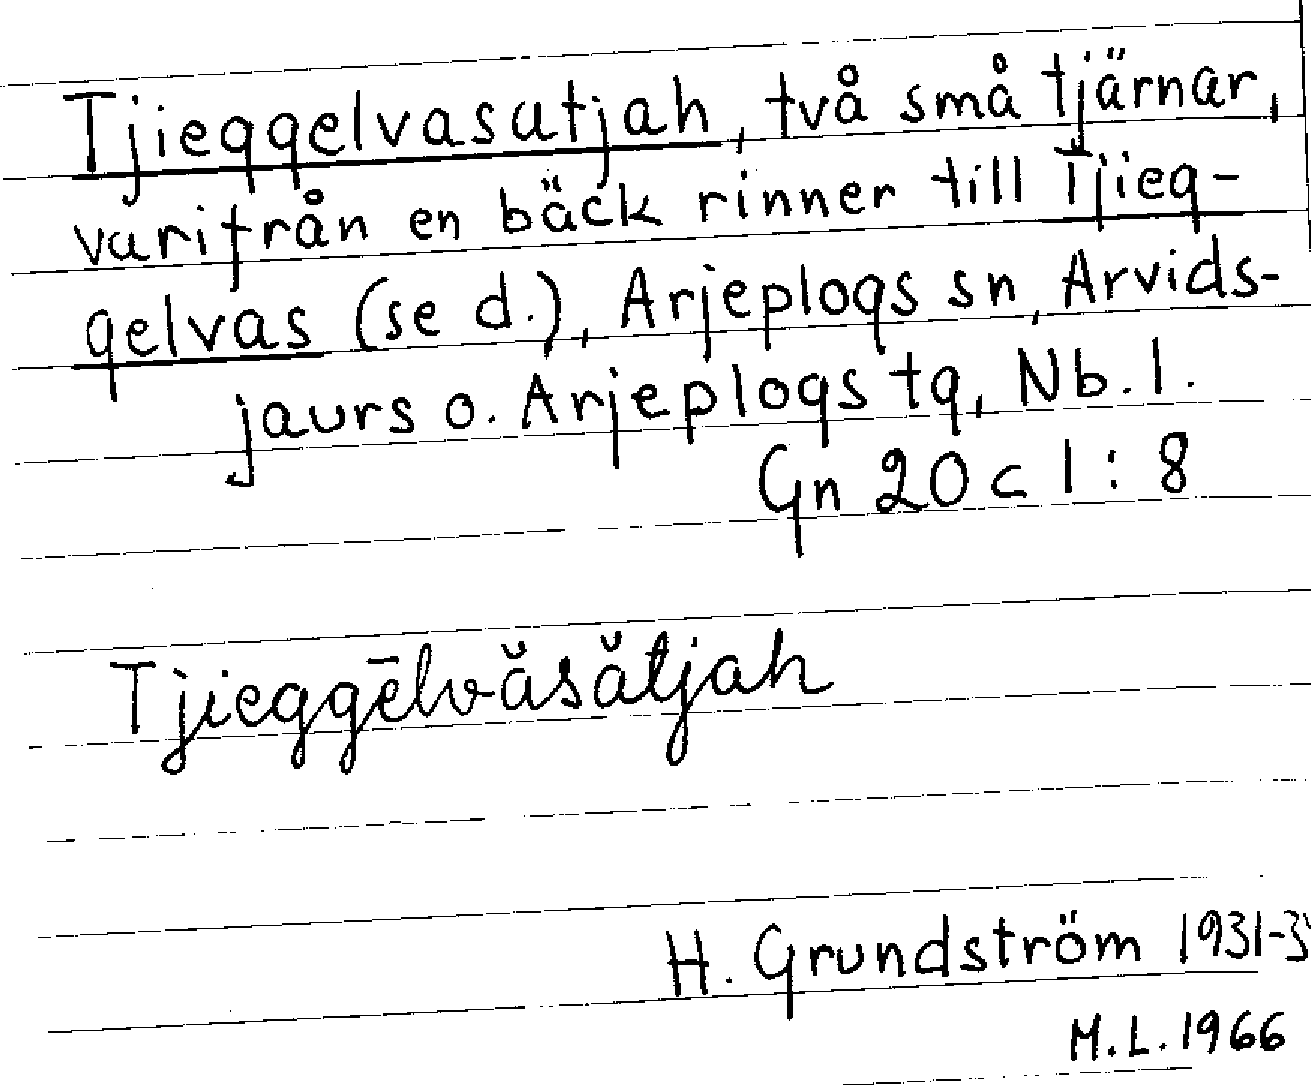 Tjieggelvasatjah, två små tjärnar,
varifrån en bäck rinner till Tjieg-
gelvas (se d.), Arjeplogs sn, Arvids-
jaurs o. Arjeplogs tg, Nb. l.
Gn 20 c 1 : 8
Tjieggēlvăsătjah
H. Grundström 1931-3
M.L. 1966